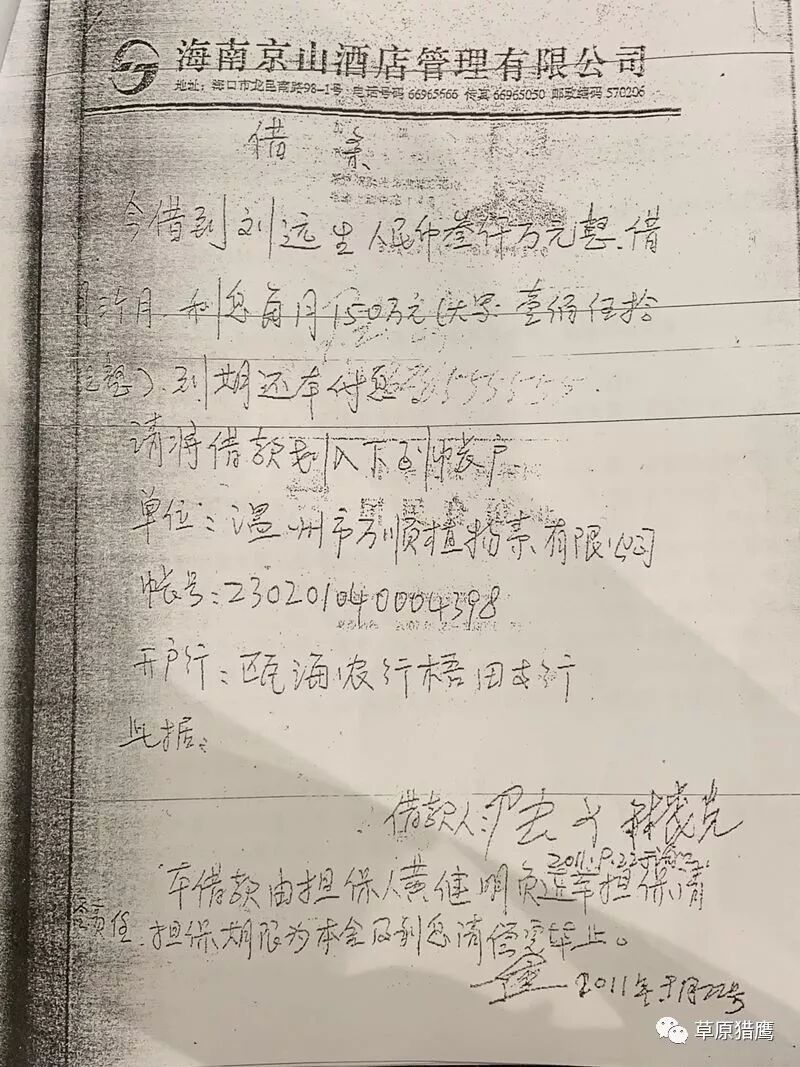 海南京山酒店管理有限公司
地址：海口市龙昆南路98-1号 电话号码 66965666 传真 66965050 邮政编码 570206
借 条
今借到刘远生人民币叁仟万元整.借
月.利息每月150万元(大写:壹佰伍拾
整).到期还本付息
请将借款划入下列帐户
单位：温州市万顺植物素有限公司
帐号：230201040004398
开户行：瓯海农行梧田支行
此据。
借款人：
2011.9.22于海口
本借款由担保人黄继明负连带担保清
责任.担保期限为本金及利息清偿完毕止。
2011年9月22号
草原猎鹰